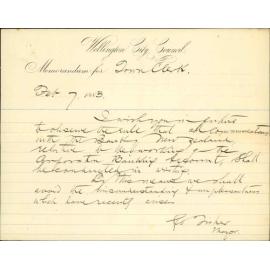 Wellington City Council.
Memorandum for Town Clerk.
Feb 7.
I wish you in future
to observe the rule that all communications
with the Bank of New Zealand
relative to the working of the
Corporation Banking Account, shall
be conducted in writing.
By this means we shall
avoid the misunderstanding &
which have recently
Fisher
Mayor.